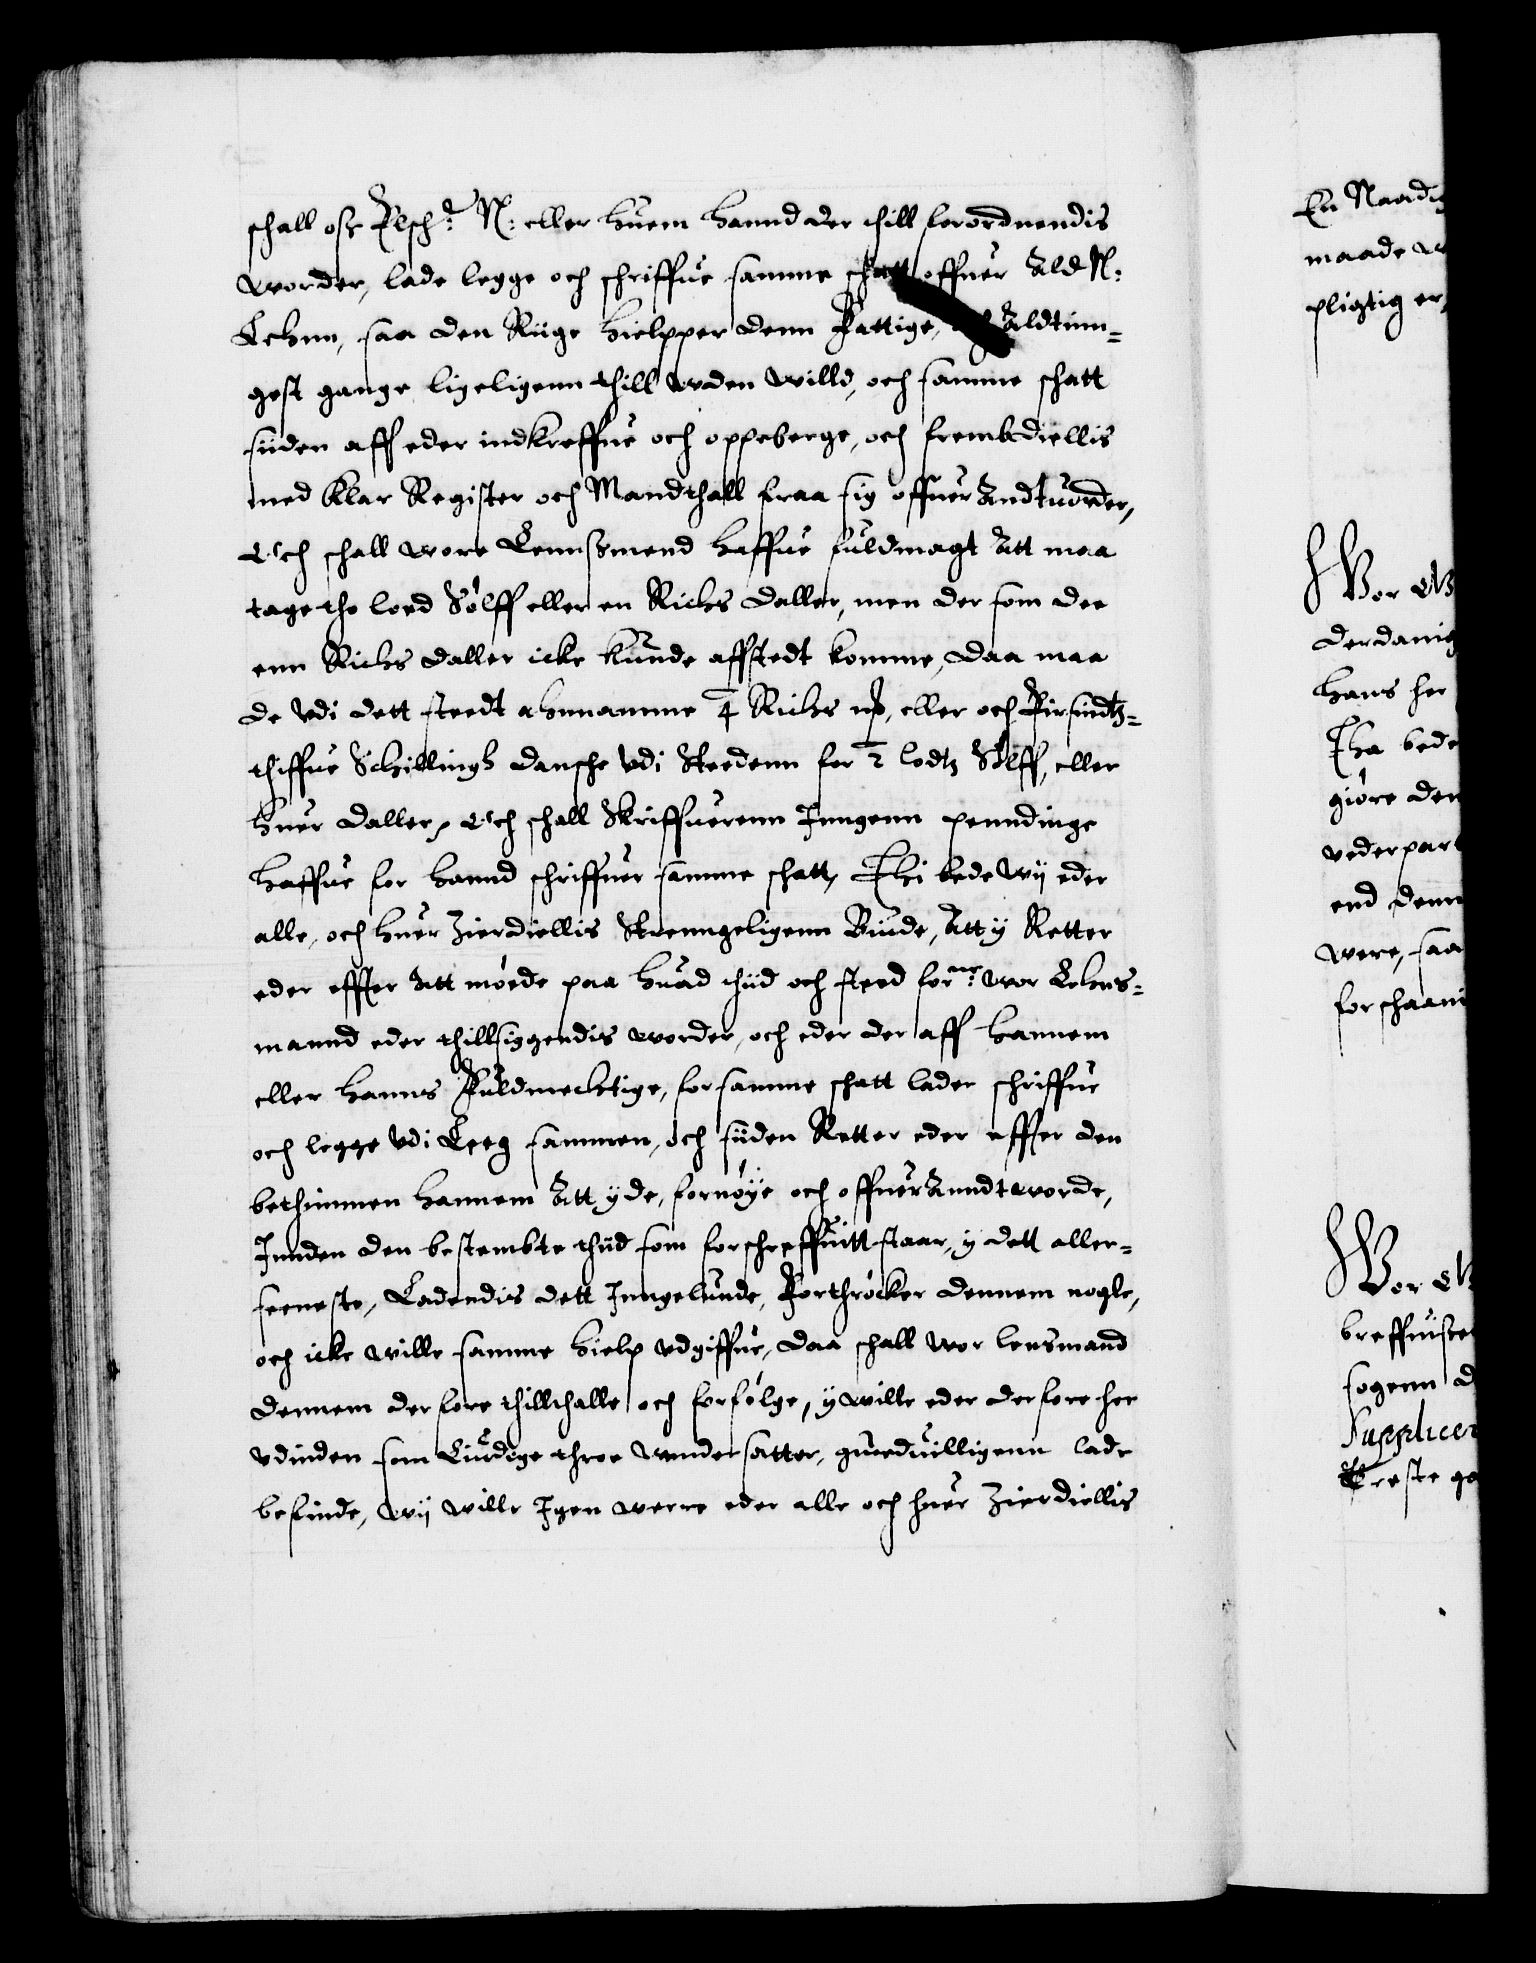 schall oss Elsch: N: eller huem hannd der thill forordnendis
worder, lade legge och schriffue samme schatt offuer Ald N:
Lehnn, saa den Riige hielpper denn Fattige, och Aldtinn-
gest gange ligeligenn thill wden willd, och samme schatt
siiden aff eder indkreffue och oppeberge, och frembdiellis
med klar Register och Mandthall fraa sig offuer Andtuorder,
Och schall wore Lennssmend haffue fuldmagt Att maa
tage tho lod Sölff eller en Richs daller, men der som dee
enn Richs daller icke kunde affstedt komme, daa maa
de vdi dett steedt ahnnamme 4 Richs mß, eller och Firsindtz-
thiffue Schillingh dansche vdi Steedenn for 2 lodtz Sölff, eller
huer daller, Och schall Skriffuerenn Inngenn penndinge
haffue for hannd schriffuer samme schatt, Thi bede wij eder
alle, och huer Zierdiellis Strenngeligenn Biude, Att y Retter
eder effter Att möde paa huad thiid och steed forne: wor Lehns-
mannd eder thillsiggendis worder, och eder der aff hannem
eller hanns Fuldmechtige, for samme schatt lader schriffue
och legge vdi Leeg sammen, och siiden Retter eder effter den
bethimmen hannem Att yde, fornöye och offuer Anndtworde,
Innden den bestembte thiid som forschreffuitt staar, y dett aller-
seeneste, Ladendis dett Inngelunde, Forthröcker dennem nogle,
och icke wille samme hielp vdgiffue, daa schall wor lensmand
dennem derfore thillthalle och forfölge, y wille eder derfore her
vdinden som Liudige throe wndersatter, guoduilligenn lade
befinde, wij wille Igen werre eder alle och huer Zierdiellis
En Naadig
maade
pligtig er,
Wor
derdanig
hans her
Tha bede
giöre den
vederpart
end denn
were, saa
for schaani
Wor
breffuisse
sogenn
Supplicer